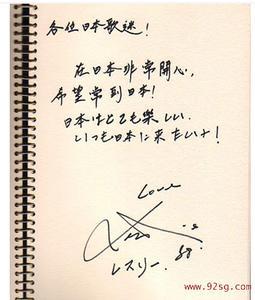 各位日本歌迷！
在日本非常開心，
希望常到日本！
日本はとても楽しい．
いつも日本に来たいナ！
Love
レスリー．
www.92sg.com